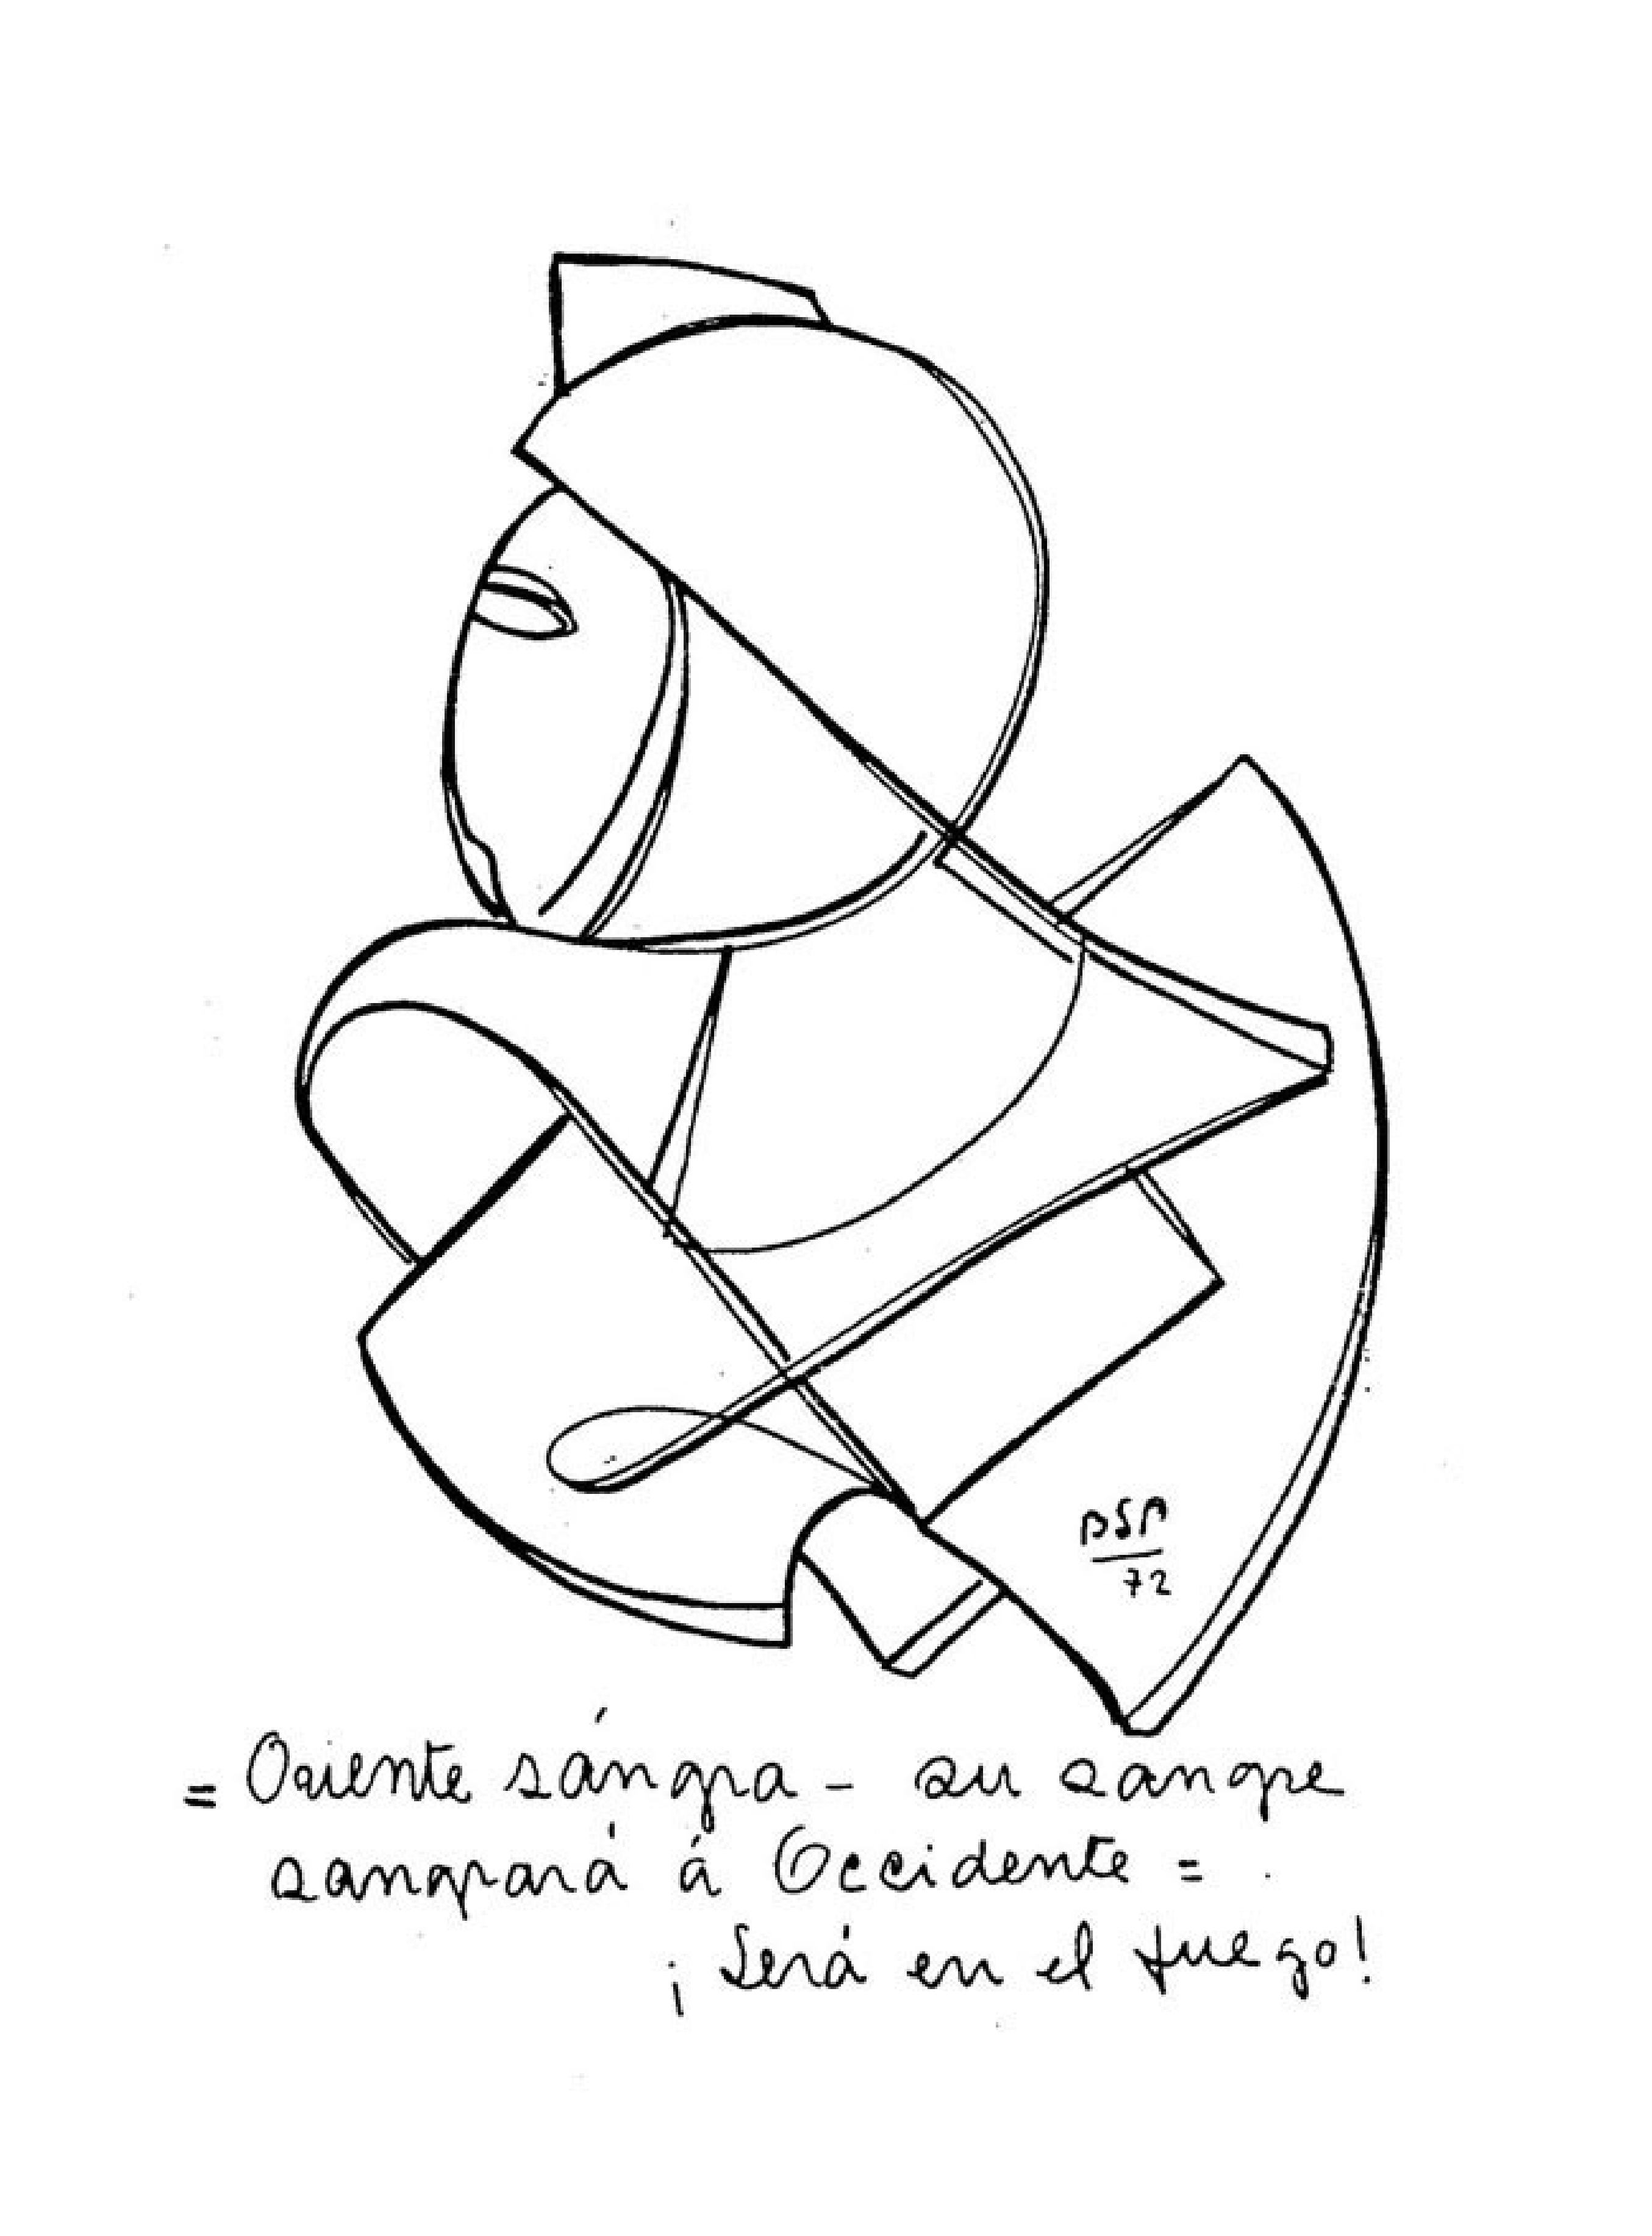 BSP
72
= Oriente sángra - su sangre
sangrará á Occidente =
¡Será en el fuego!